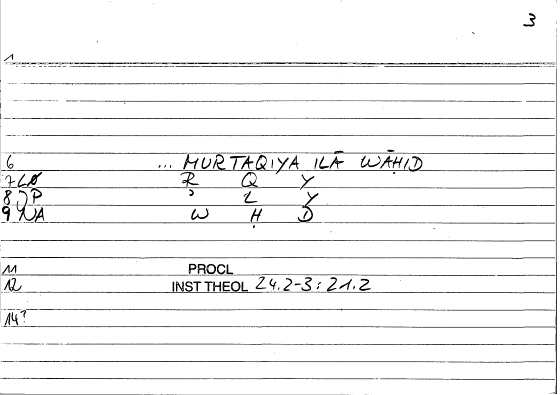 3
1
6 ... MURTAQIYA ILĀ WĀḤID
7 LØ R Q Y
8 JP ʾ L Y
9 NA W Ḥ D
11 PROCL
12 INST THEOL 24.2-3 : 21.2
14?